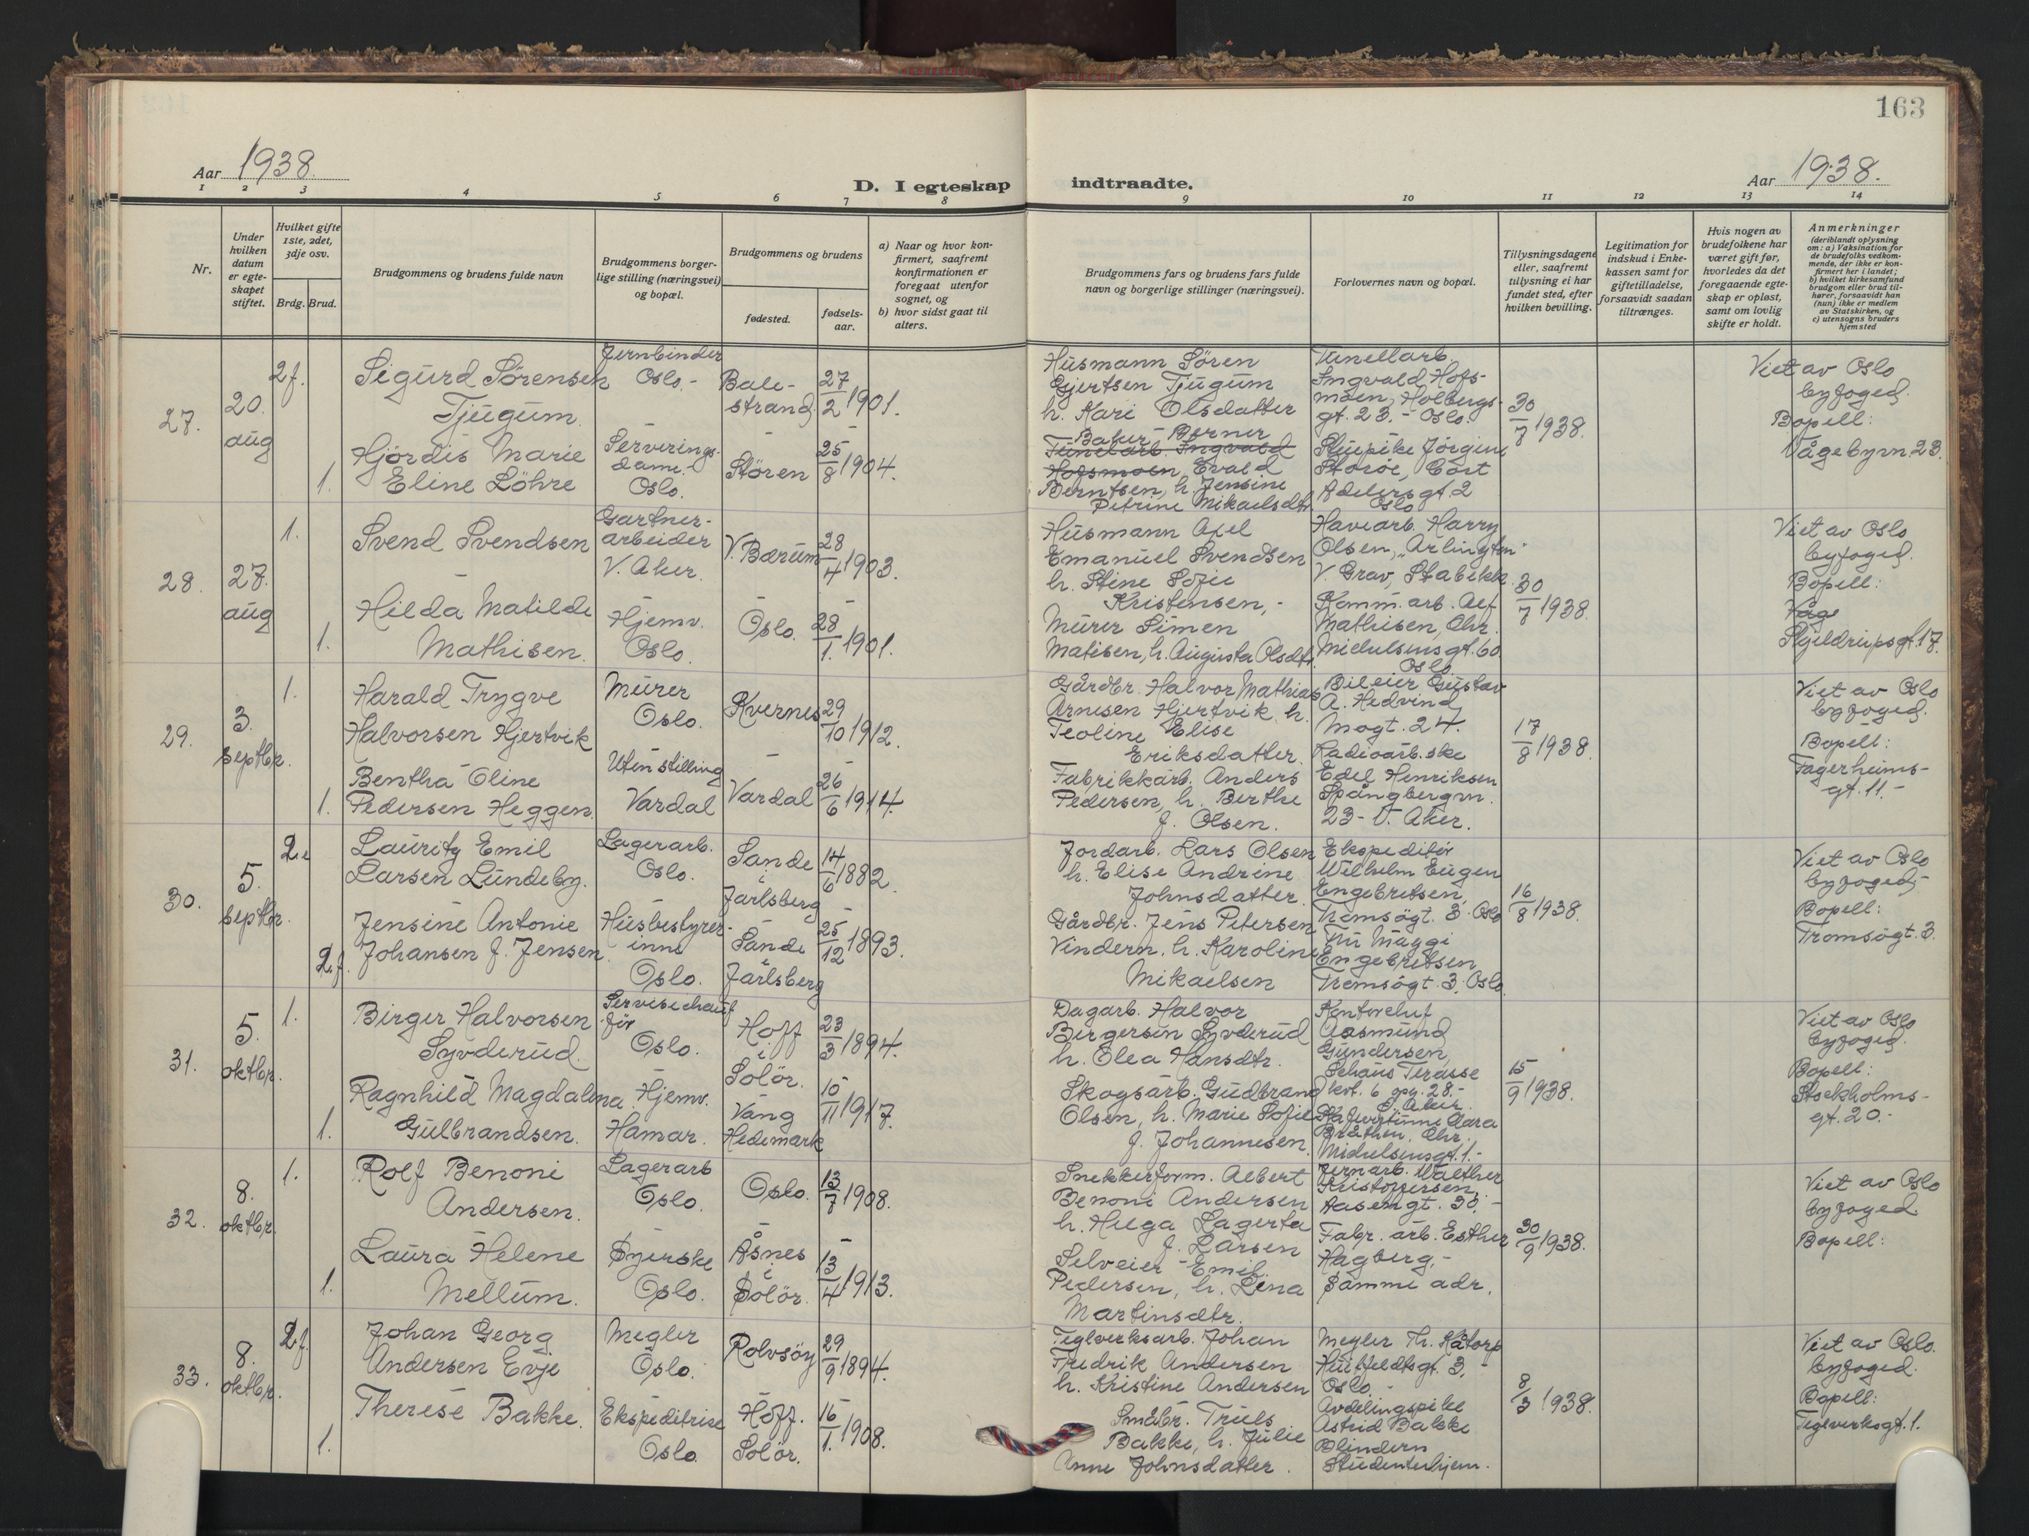 163
Aar 1938.
D. I egteskap indtraadte.
Aar 1938.
1 2 3 4 5 6 7 8 9 10 11 12 13 14
Nr.
Under hvilken datum er egteskapet stiftet.
Hvilket gifte 1ste, 2det, 3dje osv.
Brdg. Brud.
Brudgommens og brudens fulde navn
Brudgommens borgerlige stilling (næringsvei) og bopæl.
Brudgommens og brudens
fødested.
fødselsaar.
a) Naar og hvor konfirmert, saafremt konfirmationen er foregaat utenfor sognet, og
b) hvor sidst gaat til alters.
Brudgommens fars og brudens fars fulde navn og borgerlige stillinger (næringsvei).
Forlovernes navn og bopæl.
Tillysningsdagene eller, saafremt tillysning ei har fundet sted, efter hvilken bevilling.
Legitimation for indskud i Enkekassen samt for giftetilladelse, forsaavidt saadan tiltrænges.
Hvis nogen av brudefolkene har været gift før, hvorledes da det foregaaende egteskap er opløst, samt om lovlig skifte er holdt.
Anmerkninger
(deriblandt oplysning om: a) Vaksination for de brudefolks vedkommende, der ikke er konfirmert her i landet; b) hvilket kirkesamfund brudgom eller brud tilhører, forsaavidt han (hun) ikke er medlem av Statskirken, og c) utensogns bruders hjemsted
27.
20. aug
2f.
Sigurd Sørensen
Tjugum.
Jernbinder
Oslo.-
Balestrand
27/2 1901.
Husmann Sören
Gjertsen Tjugum
h. Kari Olsdatter
Tunellarb.
Ingvald Hofsmoen, Holbergsgt. 23.- Oslo.
30/7 1938.
Viet av Oslo
byfoged.
Bopell:
Vågebyrn 23.
1.
Hjördis Marie
Eline Löhre
Serveringsdame.
Oslo.
Stören
25/8 1904.
Baker Berner
Tunelarb Ingvald
Hofsmoen, Evald
Berntsen, h. Jensine
Petrine Mikaelsdtr.
Stuepike Jørgine
Storöe, Cort
Adelersgt. 2
Oslo
28.
27. aug
1.
Svend Svendsen
Gartnerarbeider
V. Aker.
V. Bærum
28/4 1903.
Husmann Axel
Emanuel Svendsen
h. Stine Sofie
Kristensen,-
Havearb. Harry
Olsen, "Arlington"
V. Grav, Stabekk.
30/7 1938.
Viet av Oslo
byfoged.
Bopell:
Våge
Skjeldrupsgt. 17.
1.
Hilda Matilde
Mathisen.
Hjemv.
Oslo.
Oslo.
28/1. 1901.
Murer Simen
Matisen, h. Augusta Olsdtr.
Komm. arb. Alf
Mathisen, Chr.
Michelsensgt. 60
Oslo
29.
3. septbr.
1.
Harald Trygve
Halvorsen Hjertvik
Murer
Oslo.
Kvernes
29/10 1912.
Gårdbr. Halvor Mathias
Arnesen Hjertvik h.
Teoline Elise
Eriksdatter
Bileier Gustav
A. Hedvind
Mogt. 24.
17/8 1938.
Viet av Oslo
byfoged.
Bopell:
Fagerheimsgt. 11.-
1.
Bentha Oline
Pedersen Heggen.
Uten stilling
Vardal
Vardal
26/6 1914.
Fabrikkarb. Anders
Pedersen, h. Berthe
f. Olsen.
Radioarb.ske
Edel Henriksen
Spångbergvn.
23 - V. Aker.
30.
5. septbr.
2.e
Lauritz Emil
Larsen Lundeby.
Lagerarb.
Oslo.
Sande i Jarlsberg
14/6 1882.
Jordarb. Lars Olsen
h. Elise Andrine
Johnsdatter
Ekspeditör
Wilhelm Eugen
Engebretsen,
Tromsøgt. 3. Oslo
16/8 1938.
Viet av Oslo
byfoged.
Bopell:
Tromsøgt. 3.
2.f.
Jensine Antonie
Johansen f. Jensen.
Husbestyrerinne
Oslo.
Sande i Jarlsberg
25/12 1893.
Gårdbr. Jens Petersen
Vindern. h. Karoline
Mikaelsen
Fru Maggi
Engebretsen
Tromsøgt. 3, Oslo.
31.
5. oktbr.
1.
Birger Halvorsen
Syvderud.
Servisechaufför
Oslo.
Hoff i Solör.
23/3 1894.
Dagarb. Halvor
Bergersen Syvderud
h. Olea Hansdtr.
Kontorchef
Aasmund
Gundersen,
Sehaus Terasse
kvt. 6 opg. 28.-
V. Aker
15/9 1938.
Viet av Oslo
byfoged.
Bopell:
Stockholmsgt. 20.-
1.
Ragnhild Magdalena
Gulbrandsen.
Hjemv.
Hamar.
Vang Hedemark
10/11 1917.
Skogsarb. Gudbrand
Olsen, h. Marie Sofie
f. Johannesen.
Kafevertinne Clara
Bråthen, Chr.
Michelsensgt. 1.-
32.
8. oktbr.
1.
Rolf Benoni
Andersen.
Lagerarb
Oslo.
Oslo.
13/7 1908.
Snekkerform. Albert
Benoni Andersen
h. Huga Lagerta
f. Larsen
Jernarb. Walther
Kristoffersen,
Aasengt. 30.-
30/9 1938.
Viet av Oslo
byfoged
Bopell:
1.
Laura Helene
Mellum.
Syerske
Oslo.
Åsnes i Solör.
13/4 1913.
Selveier Emil
Pedersen, h. Lina
Martinsdtr.
Fabr. arb. Esther
Hagberg,-
Samme adr.
33.
8. oktbr.
2.f
Johan Georg
Andersen Evje
Megler
Oslo.
Rolvsøy
29/9 1894.
Teglverksarb. Johan
Fredrik Andersen
h. Kristine Andersen
Megler Th. Kåtorp
Huitfeldtsgt. 3,
Oslo.-
8/3 1938.
Viet av Oslo.
byfoged.
Bopell:
Teglverksgt. 1.
1.
Therese Bakke.
Ekspeditrise
Oslo.
Hoff. Solör.
16/1. 1908.
Småbr. Truls
Bakke, h. Julie
Anne Johnsdatter.
Avdelingspike
Astrid Bakke
Blindern
Studenterhjem.